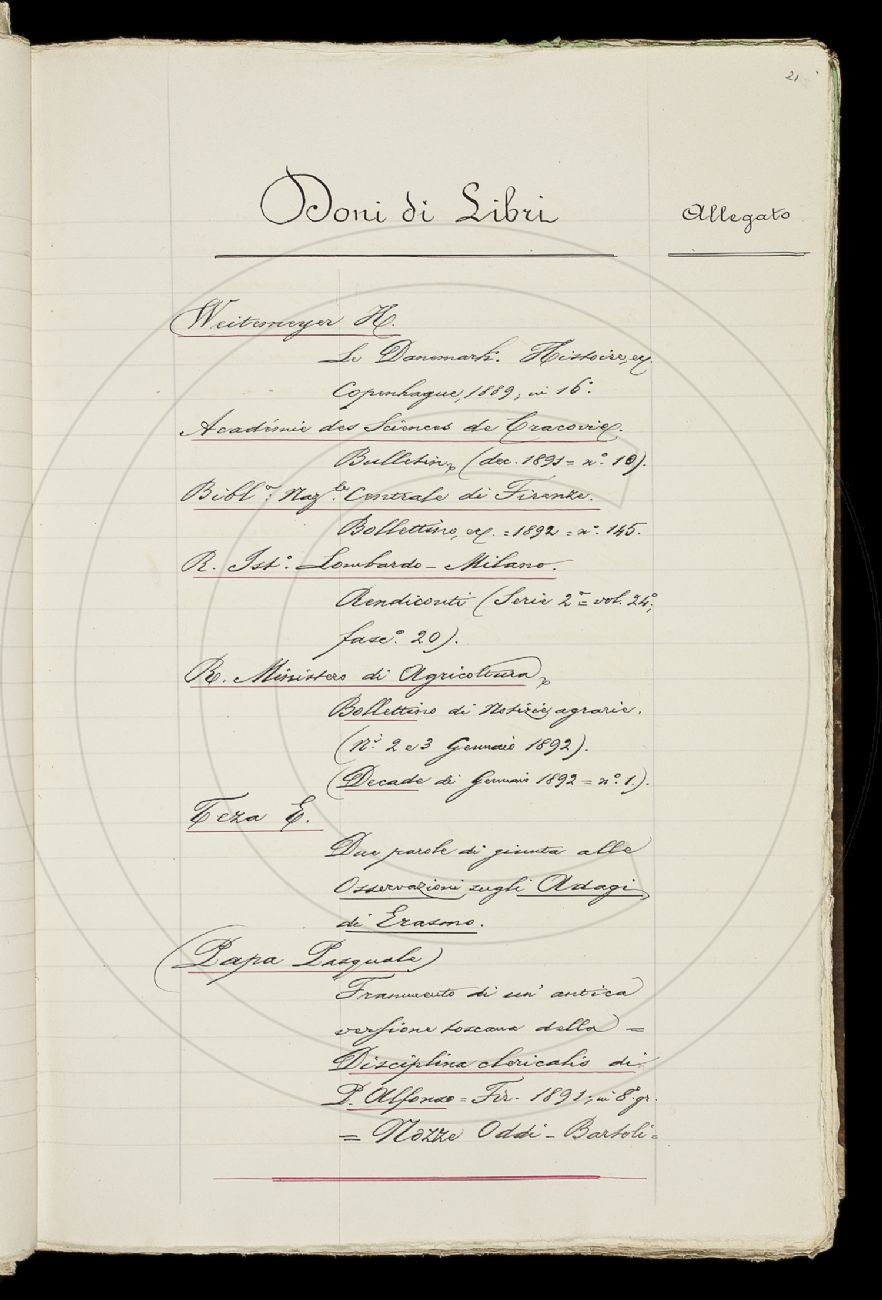 21
Doni di Libri
Allegato
Weitemeyer H.
Le Danemark. Histoire, ec.
Copenhague, 1889, in 16.°
Académie des Sciences de Cracovie.
Bulletin, (dec. 1891 = n.° 10).
Bibl.ª Naz.le Centrale di Firenze.
Bollettino, ec. = 1892 = n.° 145.
R. Ist.° Lombardo - Milano.
Rendiconti (Serie 2ª = vol. 24°,
fasc.° 20).
R. Ministero di Agricoltura,
Bollettino di Notizie agrarie.
(N.i 2 e 3 Gennaio 1892).
(Decade di Gennaio 1892 = n.° 1.).
Teza E.
Due parole di giunta alle
Osservazioni sugli Adagi
di Erasmo.
(Papa Pasquale)
Frammento di un' antica
versione toscana della =
Disciplina clericalis di
P. Alfonso = Fir. 1891, in 8° gr.
= Nozze Oddi - Bartoli =